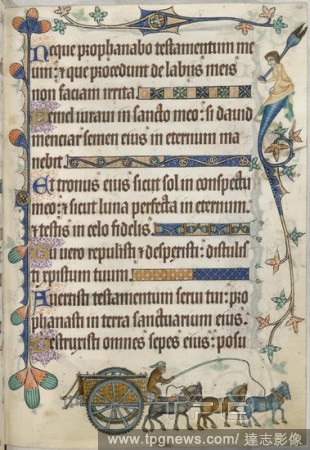 Neque prophanabo testamentum me
um: ⁊ que procedunt de labiis meis
non faciam irrita.
Semel iuraui in sancto meo: si dauid
menciar semen eius in eternum ma
nebit.
Et tronus eius sicut sol in conspectu
meo: ⁊ sicut luna perfecta in eternum
⁊ testis in celo fidelis.
Tu uero repulisti ⁊ despexisti: distulis
ti xpistum tuum.
Auertisti testamentum serui tui: pro
phanasti in terra sanctuarium eius.
Destruxisti omnes sepes eius: posu
www.tpgnews.com/ 達志影像